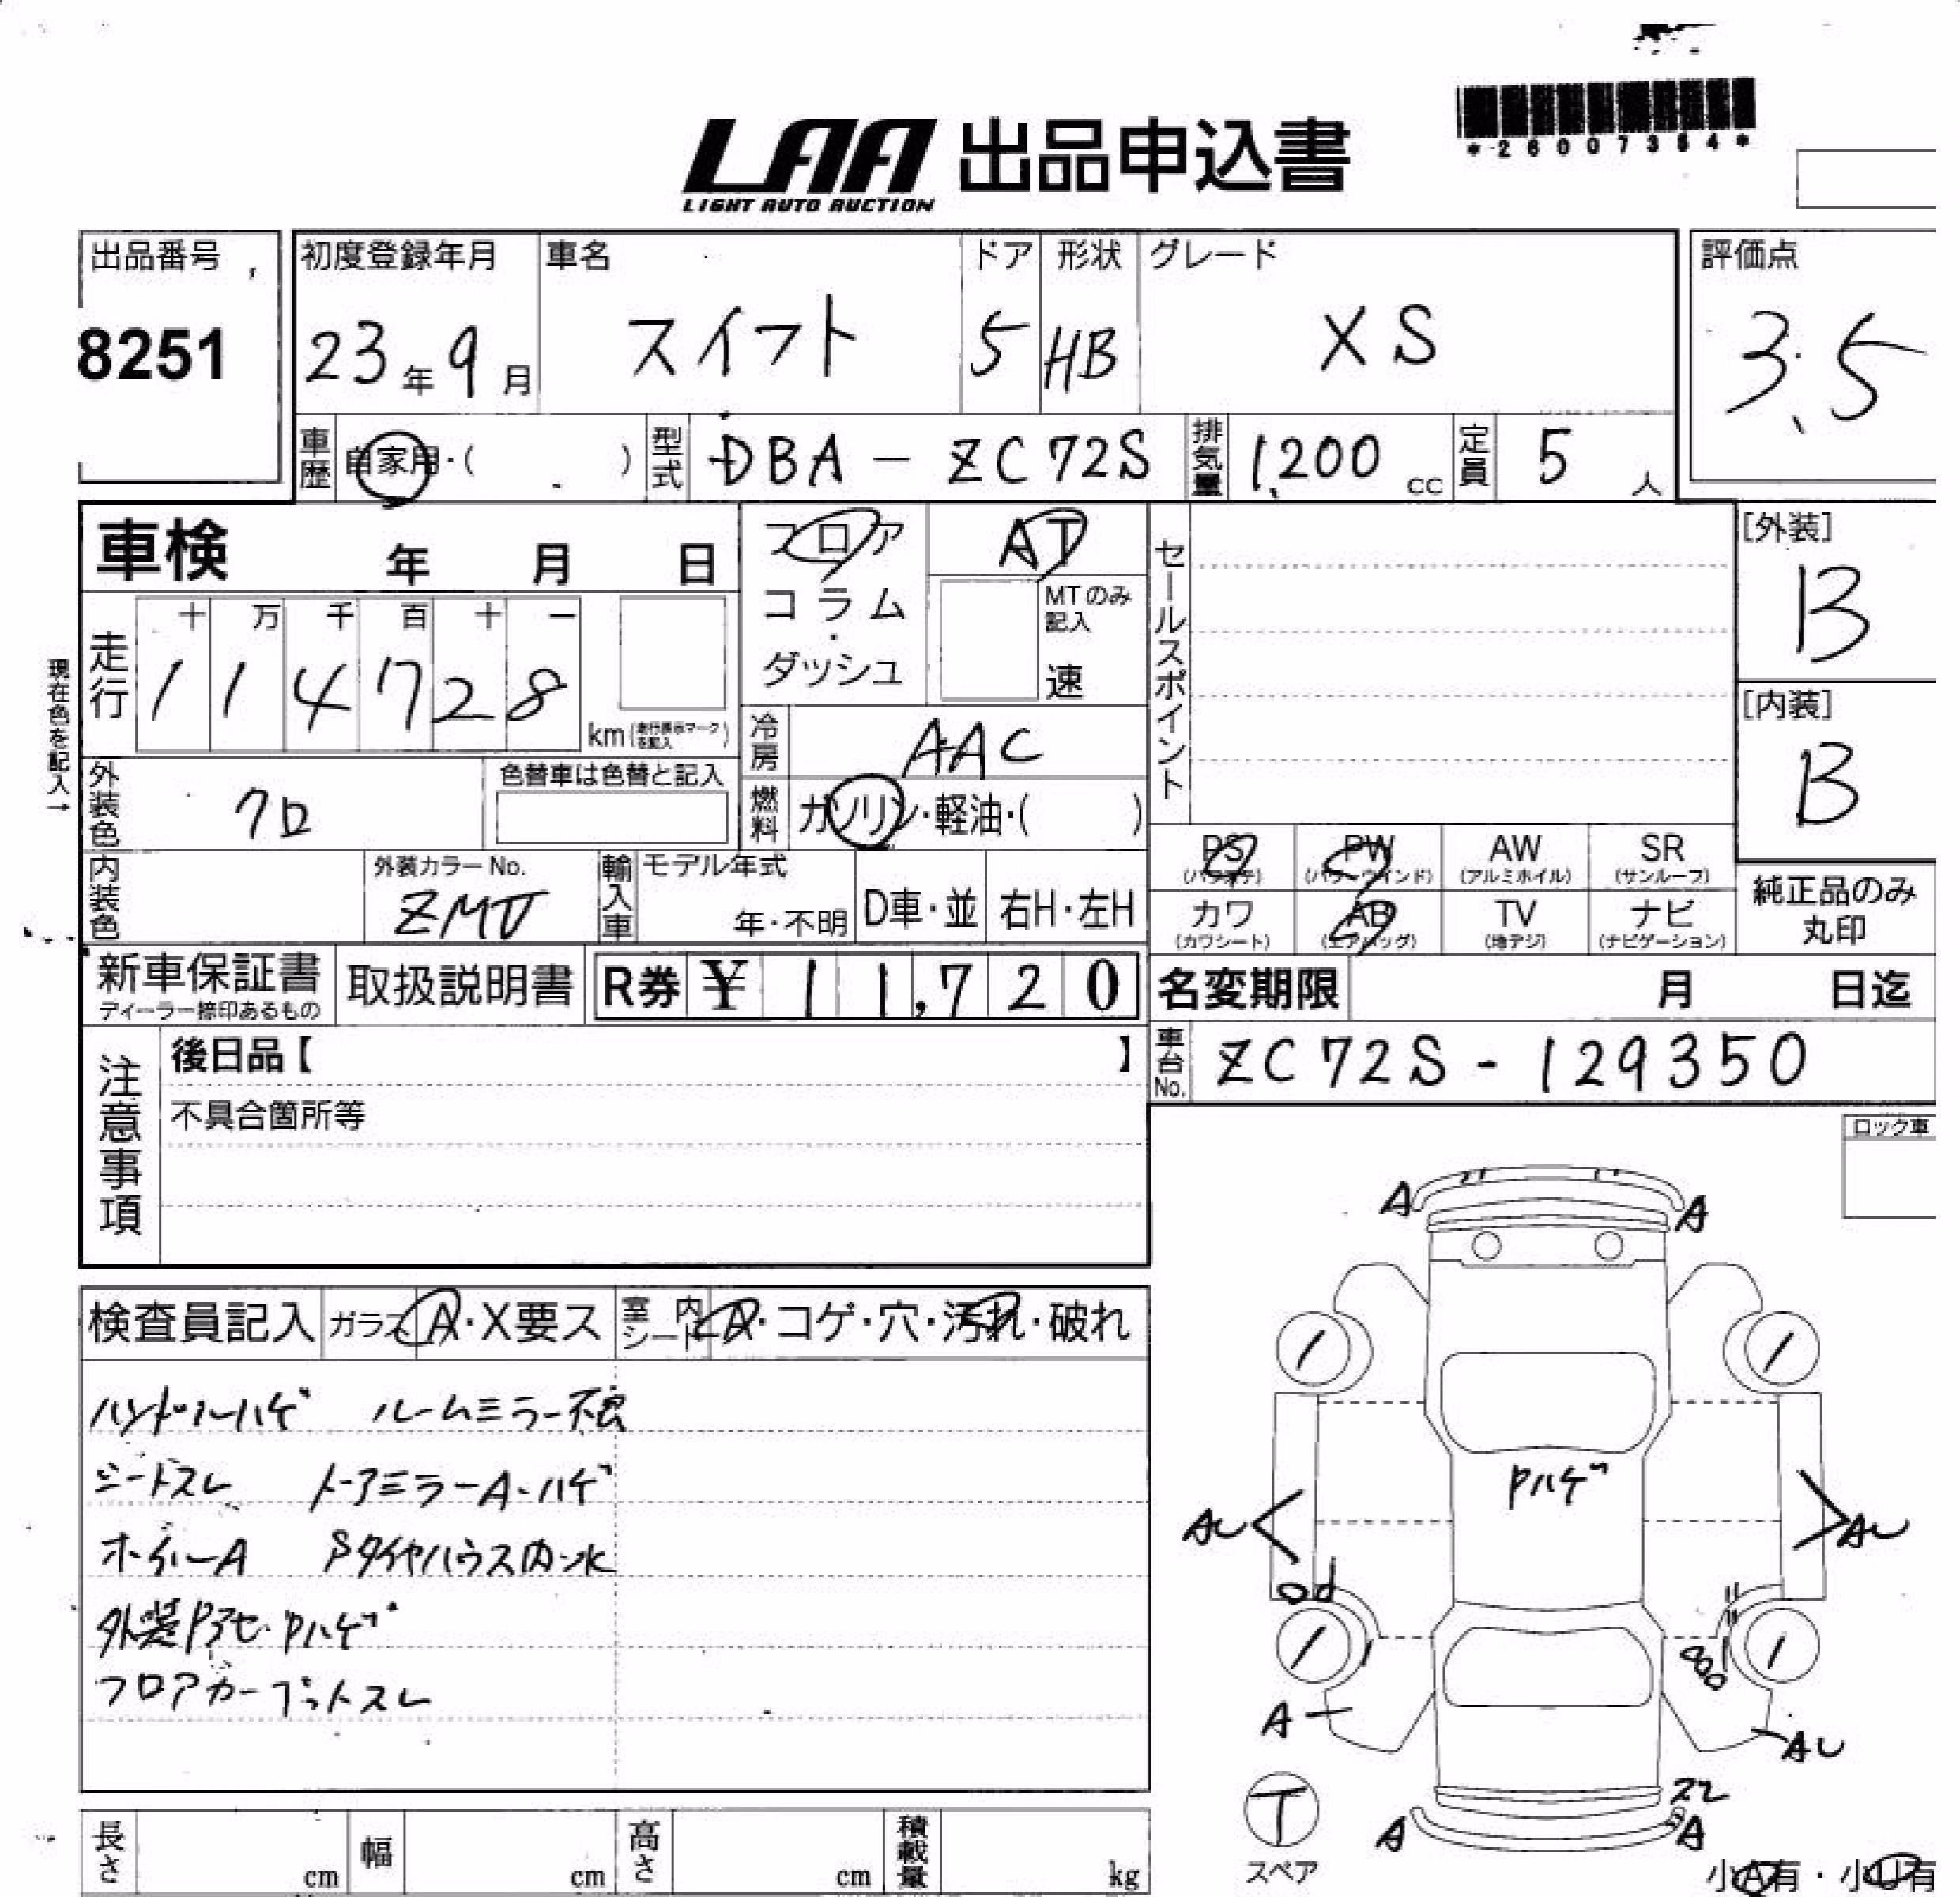 LAA 出品申込書
LIGHT AUTO AUCTION
*26007354*
出品番号
8251
初度登録年月 車名 ドア 形状 グレード
23年9月 スイフト 5 HB XS
評価点
3.5
車歴 自家用・( ) 型式 DBA-ZC72S 排気量 1,200cc 定員 5人
車検 年 月 日
フロア AT
コラム・ダッシュ
MTのみ記入 速
セールスポイント
[外装]
B
[内装]
B
現在色を記入→
走行 十 万 千 百 十 一
114728 km(走行表示マークを記入)
冷房 AAC
燃料 ガソリン・軽油・( )
外装色 クロ
色替車は色替と記入
内装色
外装カラーNo.
ZMV
輸入車 モデル年式
年・不明 D車・並 右H・左H
PS PW AW SR
(パワステ) (パワーウインド) (アルミホイル) (サンルーフ)
カワ AB TV ナビ
(カワシート) (エアバッグ) (地デジ) (ナビゲーション)
純正品のみ
丸印
新車保証書 取扱説明書 R券 ¥11,720
ディーラー捺印あるもの
名変期限 月 日迄
車台No. ZC72S-129350
注意事項
後日品【 】
不具合箇所等
ロック車
検査員記入 ガラス A・X要ス 室内シート A・コゲ・穴・汚れ・破れ
ハンドルハゲ ルームミラー不良
シートスレ ドアミラーA・ハゲ
ホイルA Sタイヤハウス内水
外装Pアセ・Pハゲ
フロアカーペットスレ
A A
Pハゲ
AU AU
A AU
ズレ
A A
T
スペア
小A有・小U有
長さ cm 幅 cm 高さ cm 積載量 kg